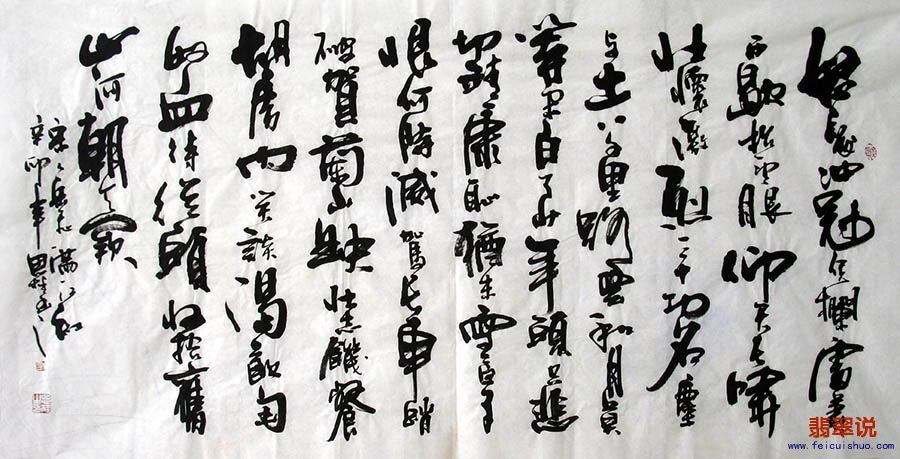 怒髮冲冠凭欄處蕭
雨歇抬望眼仰天長嘯
壯懷激烈三十功名塵
与土八千里路雲和月莫
等閑白了少年頭空悲
切靖康恥猶未雪臣子
恨何時滅駕長車踏
破賀蘭山缺壯志饑餐
胡虜肉笑談渴飲匈
奴血待從頭收拾舊
山河朝天闕
岳飛滿江紅
辛卯年
翡翠说
www.feicuishuo.com